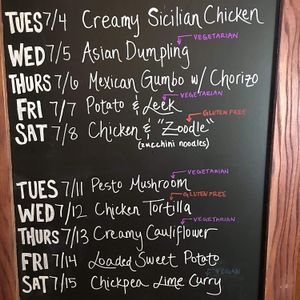 TUES 7/4 Creamy Sicilian Chicken
VEGETARIAN
WED 7/5 Asian Dumpling
THURS 7/6 Mexican Gumbo w/ Chorizo
VEGETARIAN
FRI 7/7 Potato & Leek
GLUTEN FREE
SAT 7/8 Chicken & "Zoodle"
(zucchini noodles)
VEGETARIAN
TUES 7/11 Pesto Mushroom
GLUTEN FREE
WED 7/12 Chicken Tortilla
VEGETARIAN
THURS 7/13 Creamy Cauliflower
FRI 7/14 Loaded Sweet Potato
VEGAN
SAT 7/15 Chickpea Lime Curry